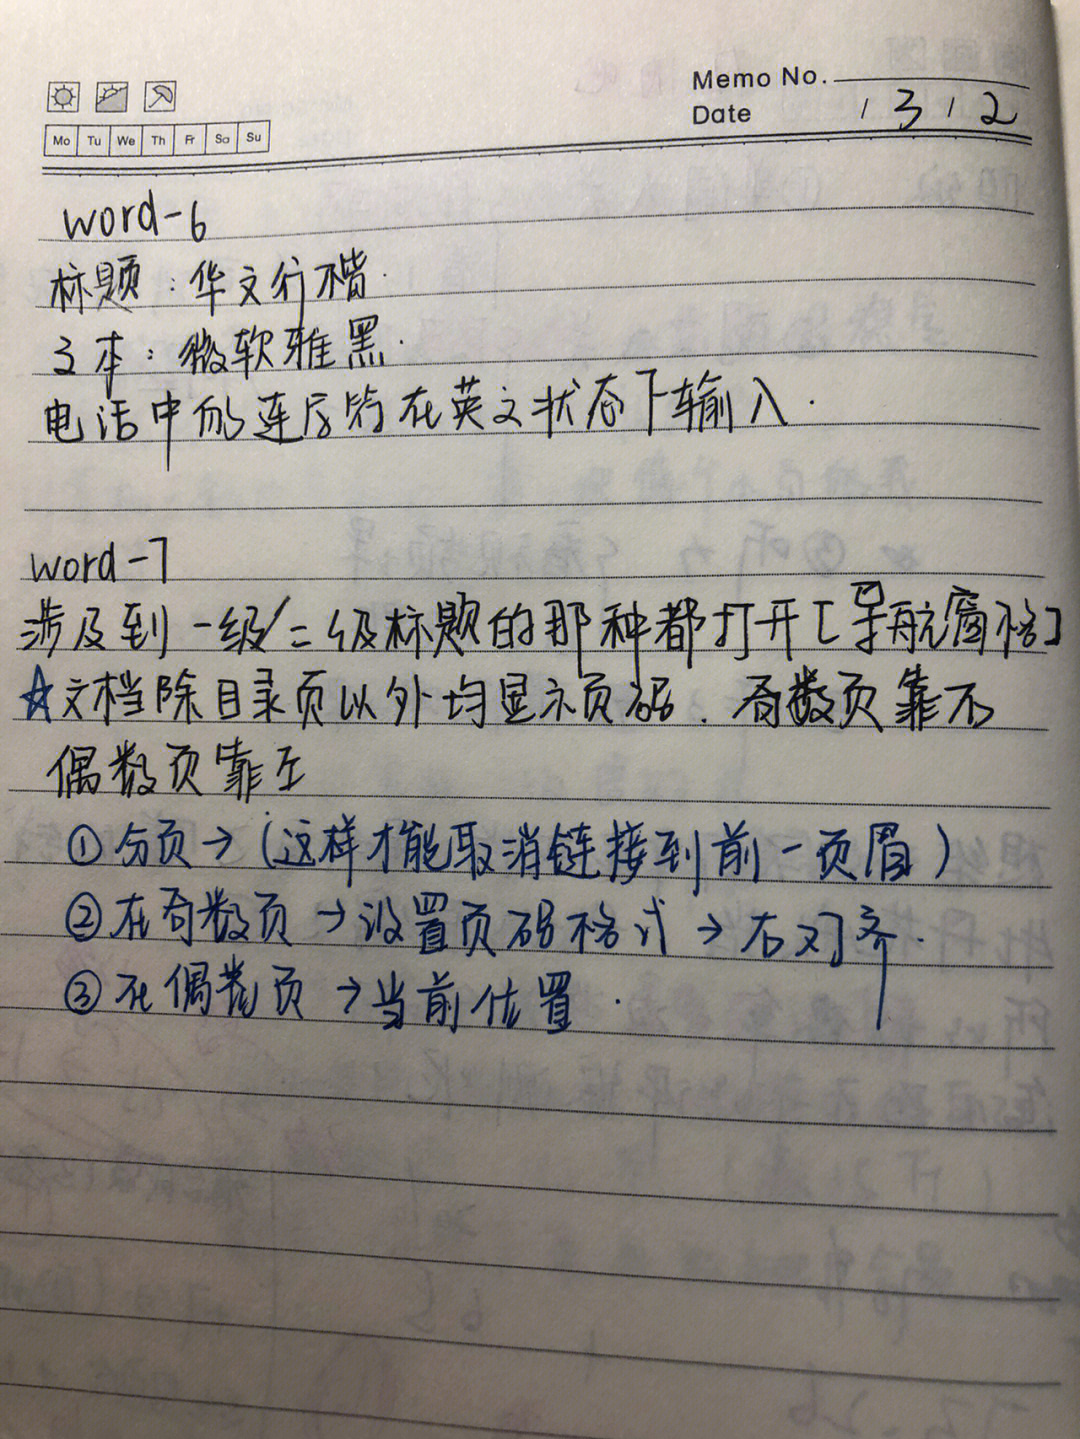 Memo No.
Date / 3 / 2
Mo Tu We Th Fr Sa Su
word-6
标题：华文行楷.
文本：微软雅黑.
电话中的连字符在英文状态下输入.
word-7
涉及到一级/二级标题的那种都打开[导航窗格]
☆文档除目录页以外均显示页码.奇数页靠右
偶数页靠左
①分页→(这样才能取消链接到前一页眉)
②在奇数页→设置页码格式→右对齐.
③在偶数页→当前位置.